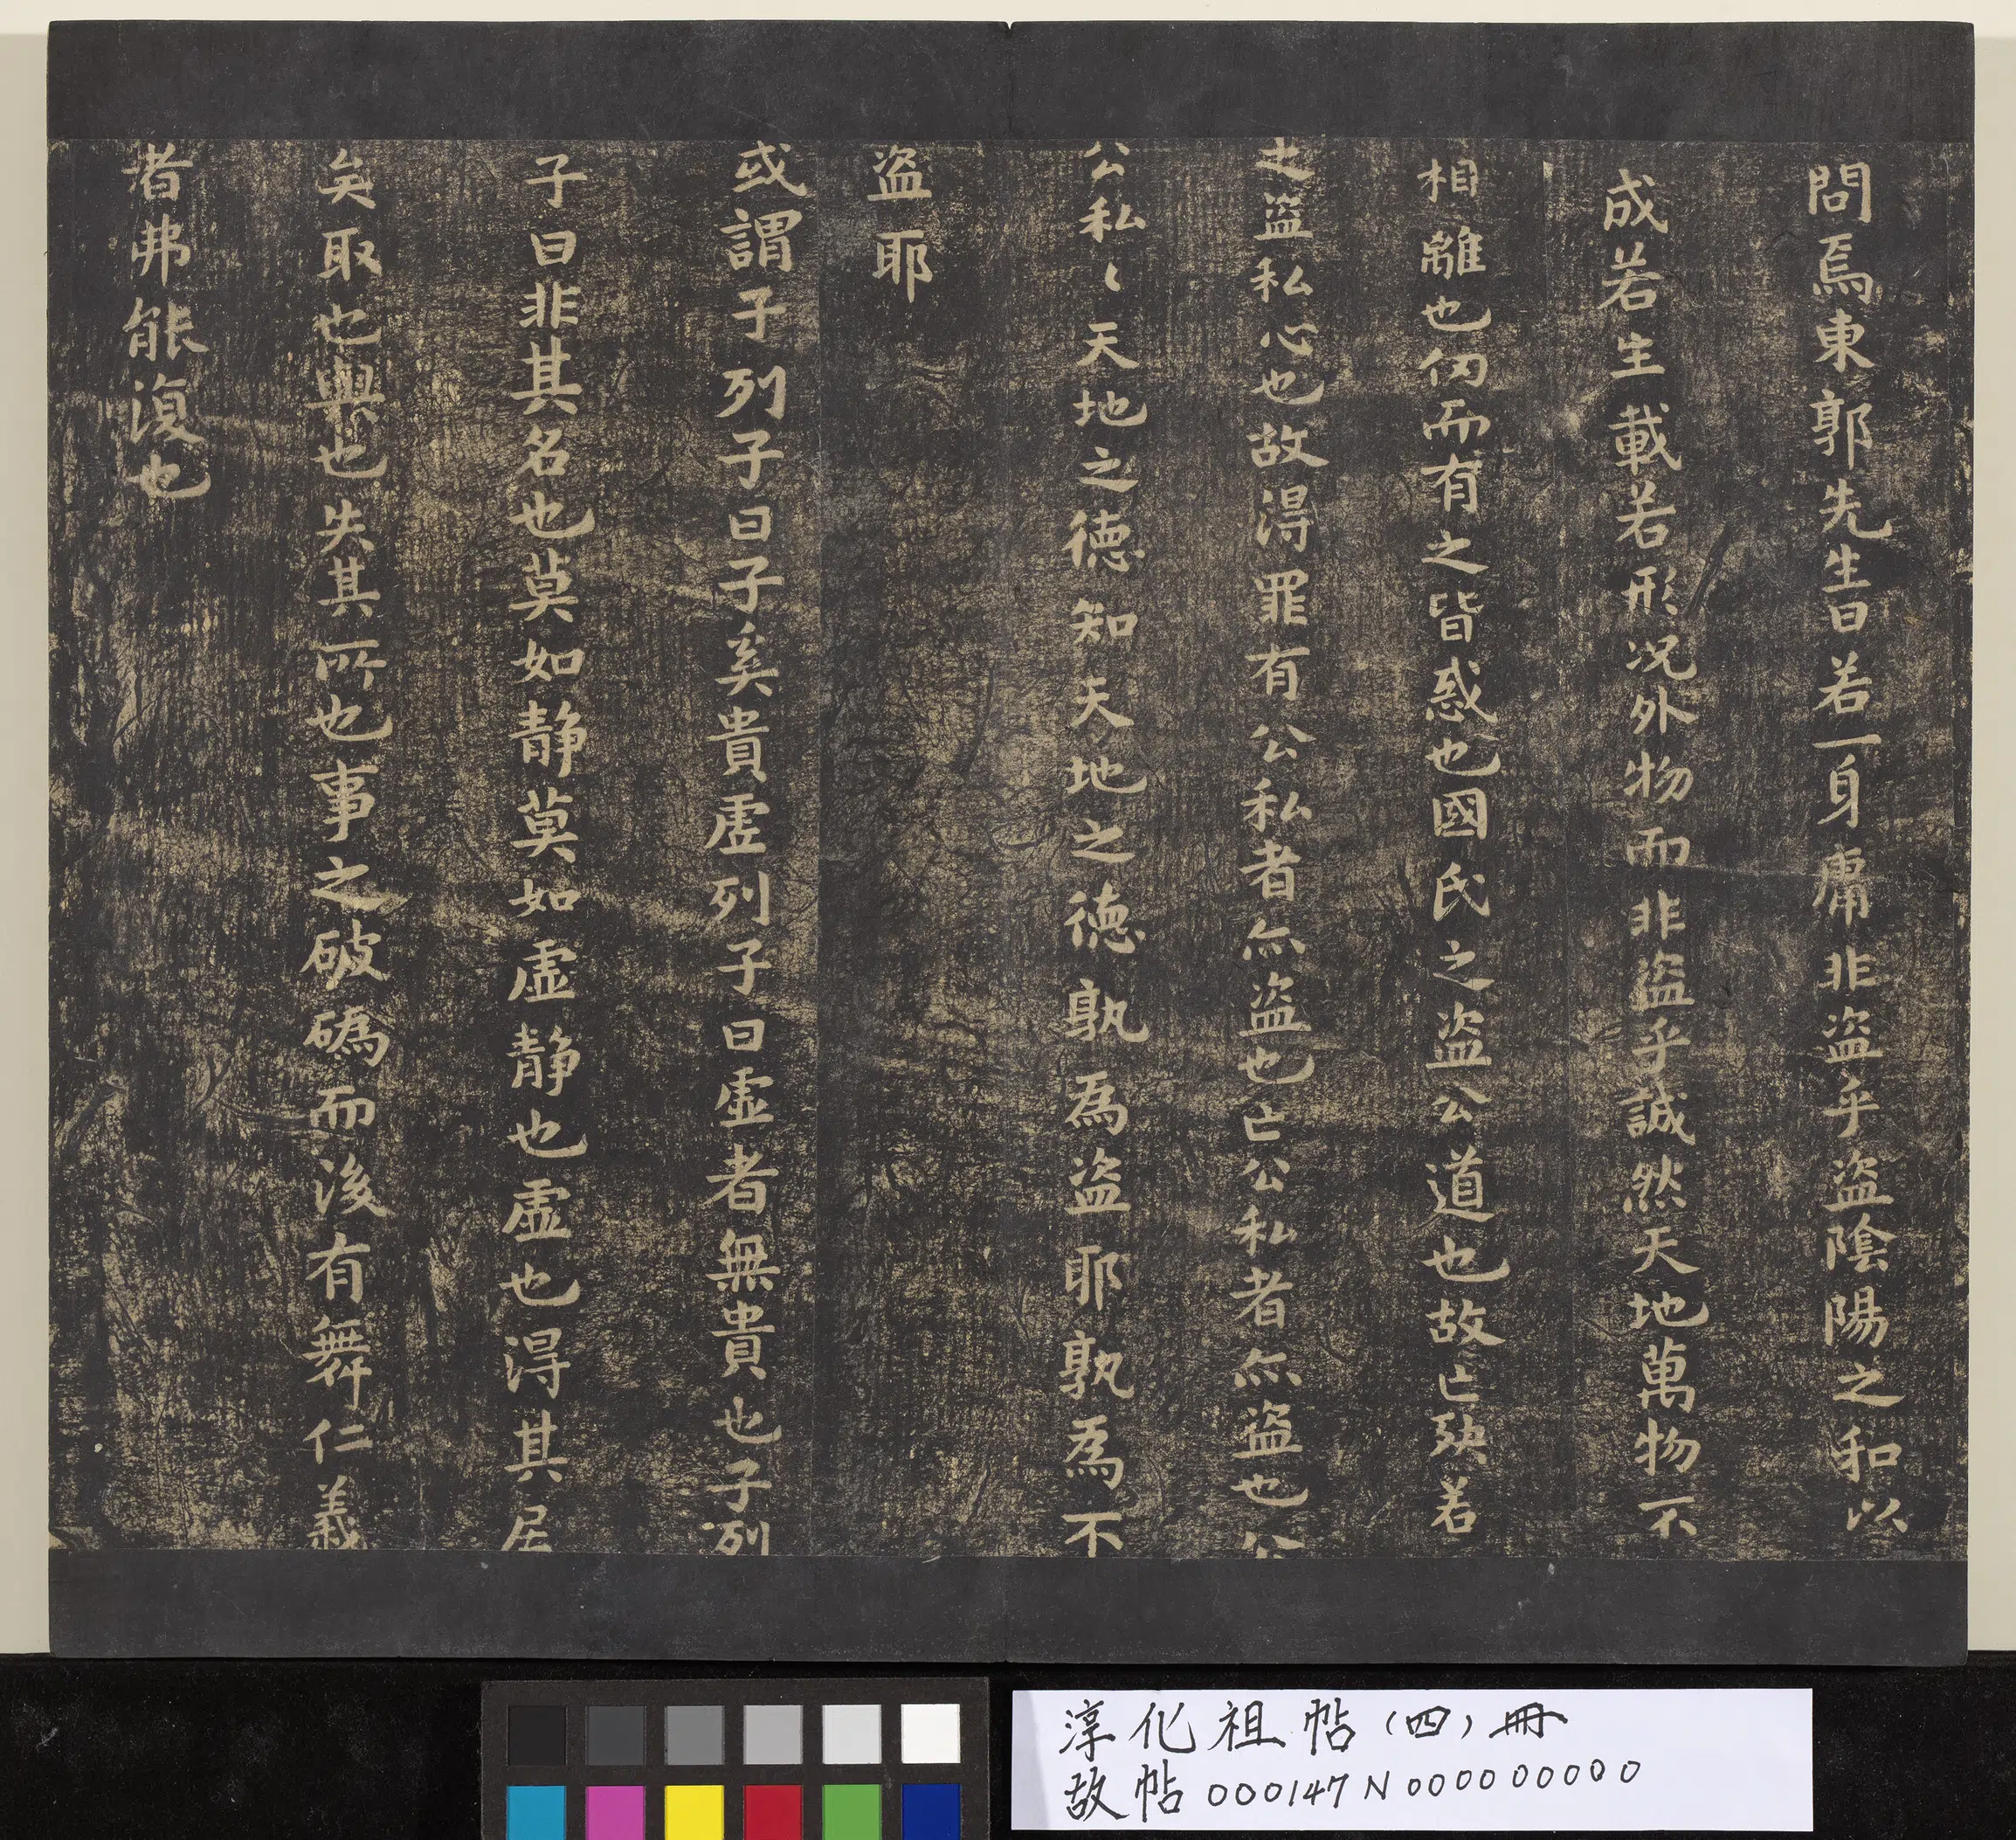 問焉東郭先生曰若一身庸非盜乎盜陰陽之和以
成若生載若形况外物而非盜乎誠然天地萬物不
相離也仞而有之皆惑也國氏之盜公道也故亡殃若
之盜私心也故得罪有公私者亦盜也亡公私者亦盜也公
公私〻天地之德知天地之德孰為盜耶孰為不
盜耶
或謂子列子曰子奚貴虛列子曰虛者無貴也子列
子曰非其名也莫如静莫如虛静也虛也得其居
矣取也與也失其所也事之破䃣而後有舞仁義
者弗能復也
淳化祖帖(四)冊
故帖000147N000000000